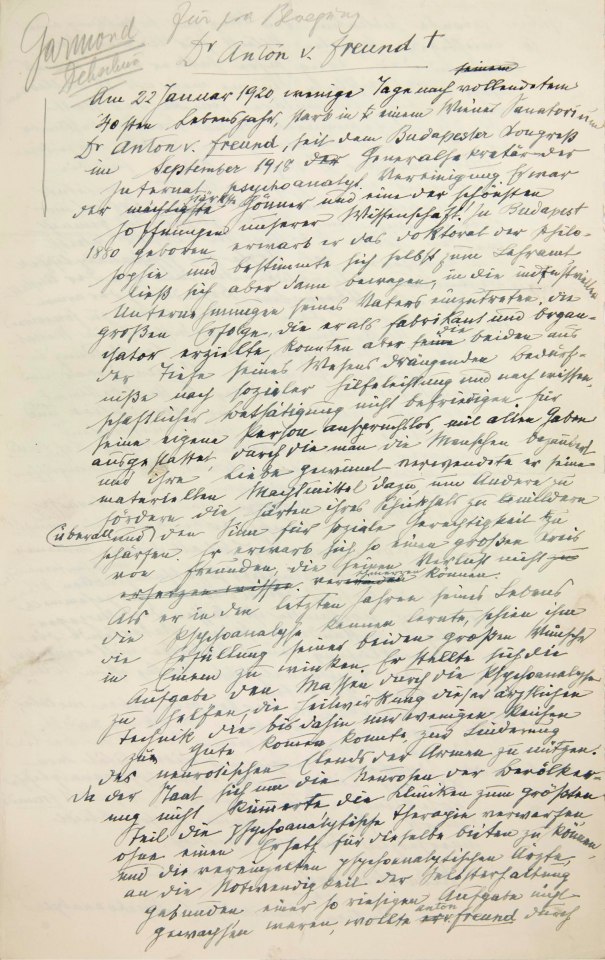 Garmond
Dr Anton v. Freund †
Am 22 Januar 1920, wenige Tage nach seinem vollendetem
40sten Lebensjahr, starb in einem Wiener Sanatorium
Dr Anton v. Freund, seit dem Budapester Congreß
im September 1918 der Generalsekretär der
Internat. psychoanalyt. Vereinigung. Er war
der mächtigste stärkste Gönner und eine der schönsten
Hoffnungen unserer Wissenschaft. In Budapest
1880 geboren, erwarb er das Doktorat der Philo-
sophie und bestimmte sich selbst zum Lehramt
ließ sich aber dann bewegen, in die industriellen
Unternehmungen seines Vaters einzutreten. Die
großen Erfolge, die er als Fabrikant und Organi-
sator erzielte, konnten aber die beiden aus
der Tiefe seines Wesens drängenden Bedürf-
niße nach sozialer Hilfeleistung und nach wissen-
schaftlicher Bethätigung nicht befriedigen. Für
seine eigene Person anspruchslos, mit allen Gaben
ausgestattet, durch die man die Menschen bezaubert
und ihre Liebe gewinnt, verwendete er seine
materiellen Machtmittel dazu, um Andere zu
fördern, die Härten ihres Schicksals zu lindern
und überall den Sinn für soziale Gerechtigkeit zu
schärfen. Er erwarb sich so einen großen Kreis
von Freunden, die seinen Verlust nicht
verschmerzen können.
Als er in den letzten Jahren seines Lebens
die Psychoanalyse kennen lernte, schien ihm
die Erfüllung seiner beiden großen Wünsche
in Einem zu winken. Er stellte sich die
Aufgabe, den Massen durch die Psychoanalyse
zu helfen, die Heilwirkung dieser ärztlichen
Technik, die bis dahin nur wenigen Reichen
zu Gute kommen konnte zur Linderung
des neurotischen Elends der Armen zu nützen.
Da der Staat sich um die Neurosen der Bevölker-
ung nicht kümmerte, die Kliniken zum größten
Teil die psychoanalytische Therapie verwerfen
ohne einen Ersatz für dieselbe bieten zu können,
und die vereinzelten psychoanalytischen Ärzte,
an die Notwendigkeit der Selbsterhaltung
gebunden, einer so riesigen Aufgabe nicht
gewachsen waren, wollte Anton v. Freund durch